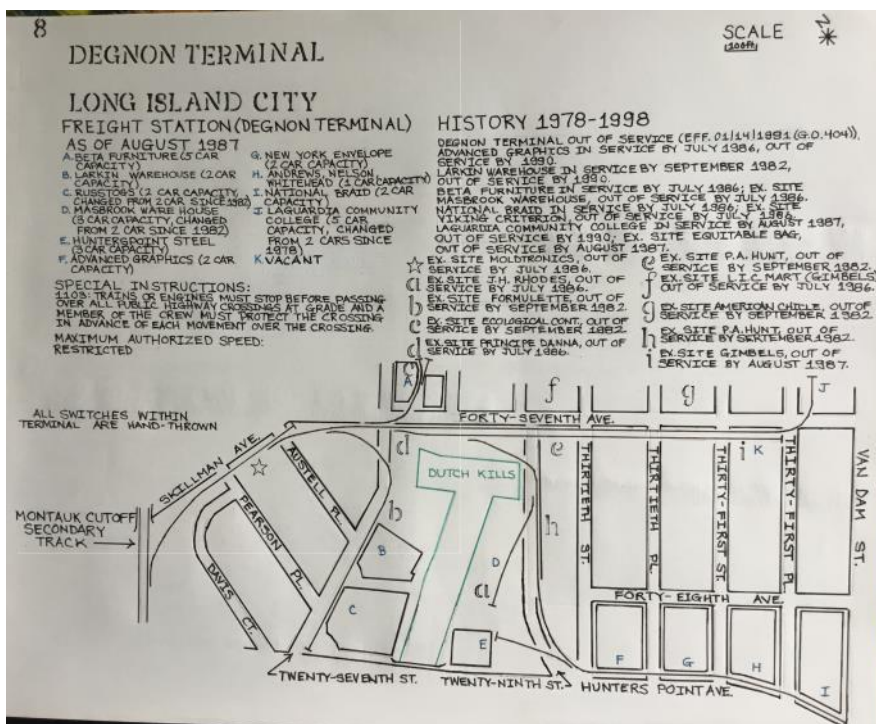 8
DEGNON TERMINAL
SCALE
100ft
N
LONG ISLAND CITY
FREIGHT STATION (DEGNON TERMINAL)
AS OF AUGUST 1987
A. BETA FURNITURE (5 CAR
CAPACITY)
B. LARKIN WAREHOUSE (2 CAR
CAPACITY)
C. RUSSTOGS (2 CAR CAPACITY,
CHANGED FROM 2 CAR SINCE 1982)
D. MASBROOK WARE HOUSE
(3 CAR CAPACITY, CHANGED
FROM 2 CAR SINCE 1982)
E. HUNTERSPOINT STEEL
(3 CAR CAPACITY)
F. ADVANCED GRAPHICS (2 CAR
CAPACITY)
G. NEW YORK ENVELOPE
(2 CAR CAPACITY)
H. ANDREWS, NELSON,
WHITEHEAD (1 CAR CAPACITY)
I. NATIONAL BRAID (2 CAR
CAPACITY)
J. LAGUARDIA COMMUNITY
COLLEGE (5 CAR
CAPACITY, CHANGED
FROM 2 CARS SINCE
1978)
K VACANT
SPECIAL INSTRUCTIONS:
1103: TRAINS OR ENGINES MUST STOP BEFORE PASSING
OVER ALL PUBLIC HIGHWAY CROSSINGS AT GRADE AND A
MEMBER OF THE CREW MUST PROTECT THE CROSSING
IN ADVANCE OF EACH MOVEMENT OVER THE CROSSING.
MAXIMUM AUTHORIZED SPEED:
RESTRICTED
HISTORY 1978-1998
DEGNON TERMINAL OUT OF SERVICE (EFF. 01/14/1991 (G.O. 404)).
ADVANCED GRAPHICS IN SERVICE BY JULY 1986, OUT OF
SERVICE BY 1990.
LARKIN WAREHOUSE IN SERVICE BY SEPTEMBER 1982,
OUT OF SERVICE BY 1990.
BETA FURNITURE IN SERVICE BY JULY 1986; EX. SITE
MASBROOK WAREHOUSE, OUT OF SERVICE BY JULY 1986.
NATIONAL BRAID IN SERVICE BY JULY 1986; EX. SITE
VIKING CRITERION, OUT OF SERVICE BY JULY 1986.
LAGUARDIA COMMUNITY COLLEGE IN SERVICE BY AUGUST 1987,
OUT OF SERVICE BY 1990; EX. SITE EQUITABLE BAG,
OUT OF SERVICE BY AUGUST 1987.
EX. SITE MOLDTRONICS, OUT OF
SERVICE BY JULY 1986.
a EX. SITE J.H. RHODES, OUT OF
SERVICE BY JULY 1986.
b EX. SITE FORMULETTE, OUT OF
SERVICE BY SEPTEMBER 1982.
c EX. SITE ECOLOGICAL CONT., OUT OF
SERVICE BY SEPTEMBER 1982.
d EX. SITE PRINCIPE DANNA, OUT OF
SERVICE BY JULY 1986.
e EX. SITE P.A. HUNT, OUT OF
SERVICE BY SEPTEMBER 1982.
f EX. SITE L.I.C. MART (GIMBELS)
OUT OF SERVICE BY JULY 1986.
g EX. SITE AMERICAN CHICLE, OUT OF
SERVICE BY SEPTEMBER 1982.
h EX. SITE P.A. HUNT, OUT OF
SERVICE BY SEPTEMBER 1982.
i EX. SITE GIMBELS, OUT OF
SERVICE BY AUGUST 1987.
ALL SWITCHES WITHIN
TERMINAL ARE HAND-THROWN
c
A
f
g
J
FORTY-SEVENTH AVE.
SKILLMAN AVE.
AUSTELL PL.
PEARSON PL.
DAVIS CT.
MONTAUK CUTOFF
SECONDARY
TRACK
d
e
i
K
DUTCH KILLS
b
h
B
D
a
C
E
THIRTIETH ST.
THIRTIETH PL.
THIRTY-FIRST ST.
THIRTY-FIRST PL.
VAN DAM ST.
FORTY-EIGHTH AVE.
F
G
H
I
TWENTY-SEVENTH ST.
TWENTY-NINTH ST.
HUNTERS POINT AVE.